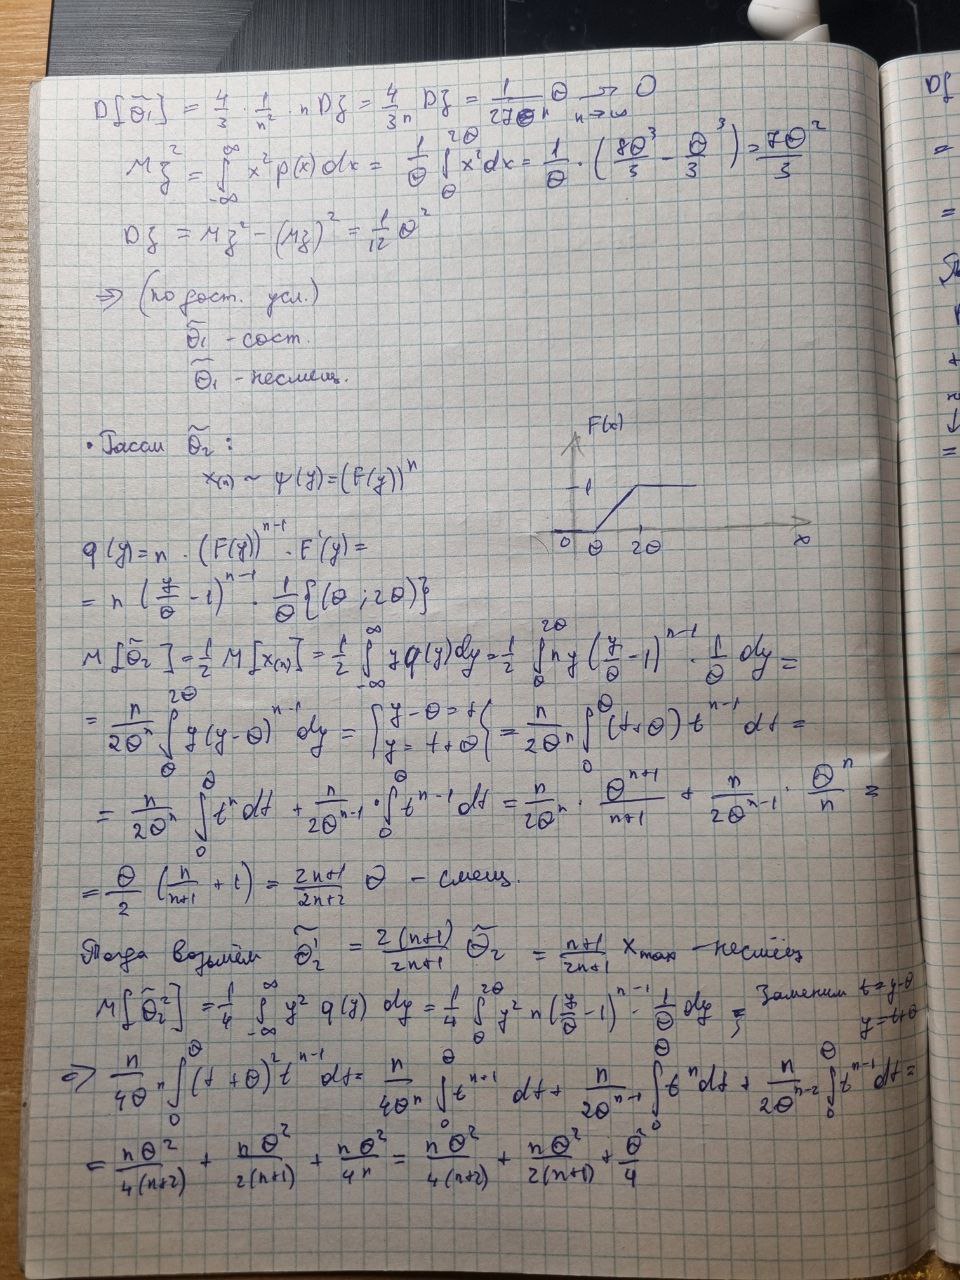 D[θ̃₁] = 4/3 · 1/n² · n Dξ = 4/3n Dξ = 1/27θn θ → 0 n→∞
Mξ² = ∫_{-∞}^{∞} x² p(x) dx = 1/θ ∫_θ^{2θ} x² dx = 1/θ · (8θ³/3 − θ³/3) = 7θ²/3
Dξ = Mξ² − (Mξ)² = 1/12 θ²
⇒ (по дост. усл.)
θ̃₁ - сост.
θ̃₁ - несмещ.
• Рассм θ̃₂ :
x₍ₙ₎ ~ ψ(y) = (F(y))ⁿ
F(x)
1
0 θ 2θ x
φ(y) = n · (F(y))^{n-1} · F'(y) =
= n (y/θ − 1)^{n-1} · 1/θ {(θ ; 2θ)}
M[θ̃₂] = 1/2 M[x₍ₙ₎] = 1/2 ∫_{-∞}^{∞} y φ(y) dy = 1/2 ∫_θ^{2θ} n y (y/θ − 1)^{n-1} · 1/θ dy =
= n/2θⁿ ∫_θ^{2θ} y(y−θ)^{n-1} dy = { y−θ = t y = t+θ } = n/2θⁿ ∫_0^θ (t+θ) t^{n-1} dt =
= n/2θⁿ ∫_0^θ tⁿ dt + n/2θ^{n-1} · ∫_0^θ t^{n-1} dt = n/2θⁿ · θ^{n+1}/n+1 + n/2θ^{n-1} · θⁿ/n =
= θ/2 (n/n+1 + 1) = 2n+1/2n+2 θ - смещ.
Тогда возьмём θ̃₂' = 2(n+1)/2n+1 θ̃₂ = n+1/2n+1 x_max - несмещ
M[θ̃₂²] = 1/4 ∫_{-∞}^{∞} y² φ(y) dy = 1/4 ∫_θ^{2θ} y² n (y/θ − 1)^{n-1} · 1/θ dy = Заменим t = y-θ
y = t+θ
⇒ n/4θⁿ ∫_0^θ (t+θ)² t^{n-1} dt = n/4θⁿ ∫_0^θ t^{n+1} dt + n/2θ^{n-1} ∫_0^θ tⁿ dt + n/2θ^{n-2} ∫_0^θ t^{n-1} dt =
= nθ²/4(n+2) + nθ²/2(n+1) + nθ²/4n = nθ²/4(n+2) + nθ²/2(n+1) + θ²/4